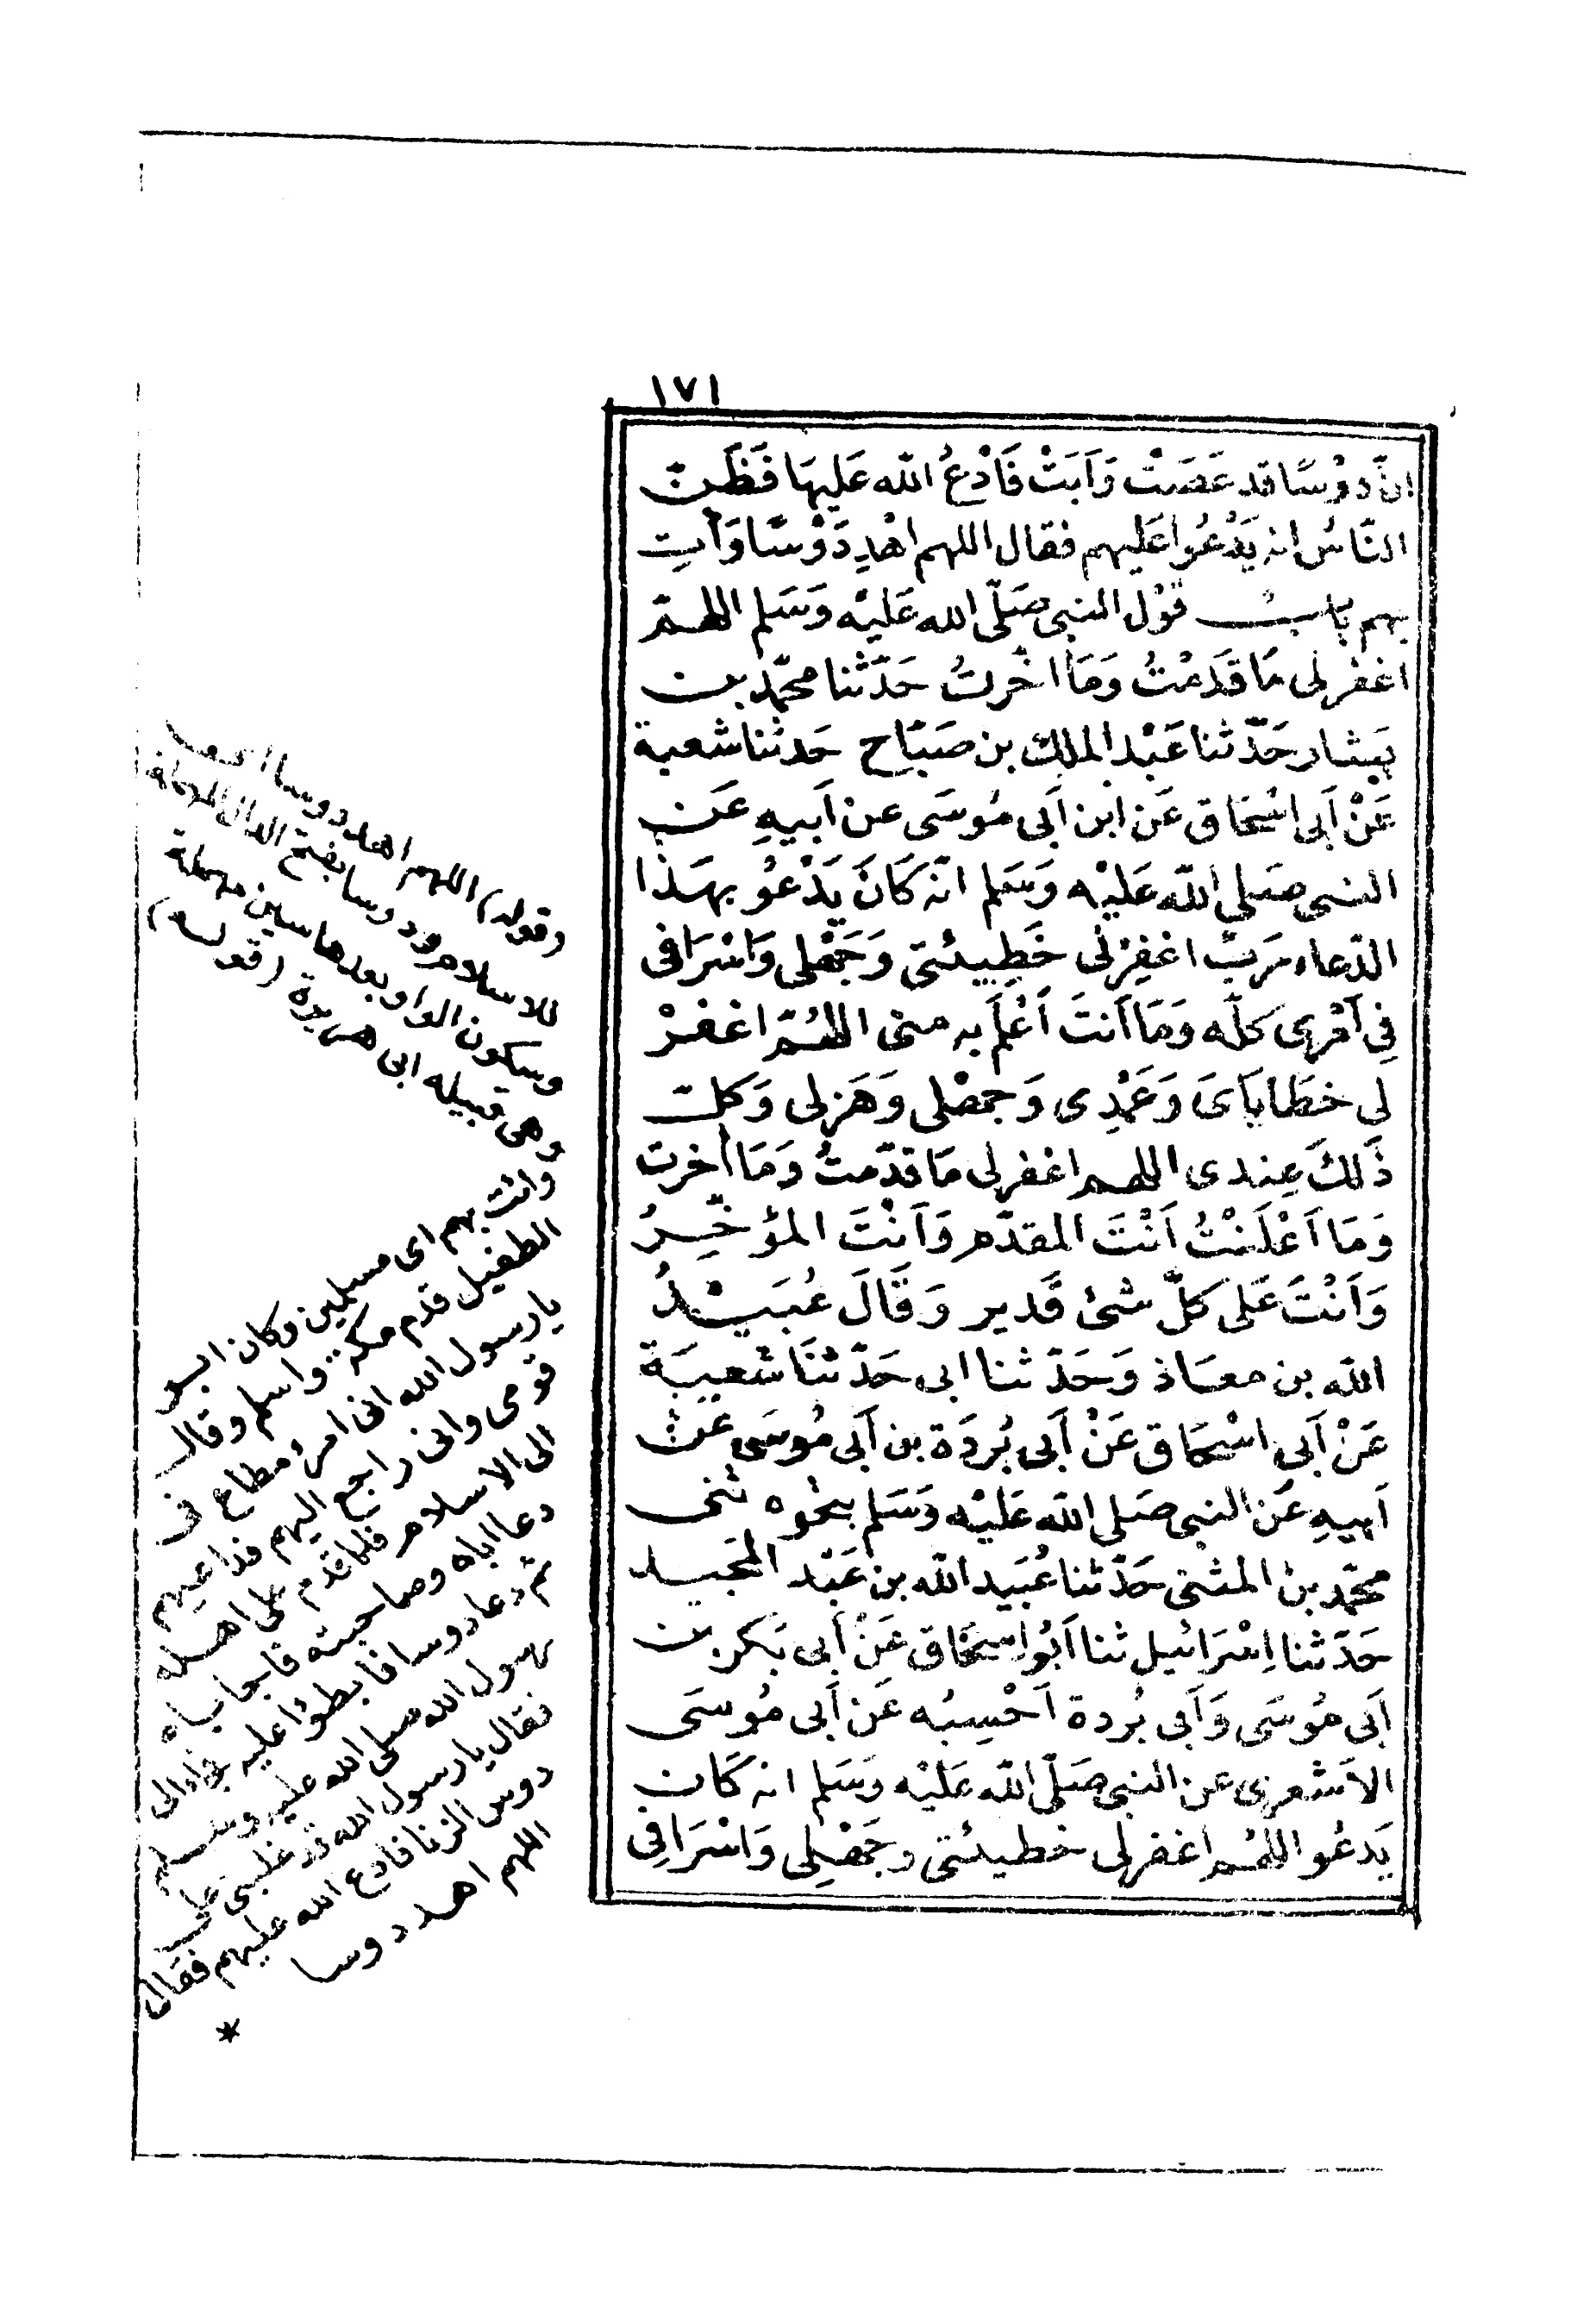 ١٧١
انّ دوْسًا قد عَصَتْ وَاَبَتْ فَادْعُ الله عَليهَا فَظَنّ
النّاسُ انه يَدْعُوا عَليهم فقال اللهم اهْدِ دَوْسًا وَأتِ
بهم بابُ قوْل النبى صَلّى الله عَليْه وَسَلم اللهمّ
اغفرلى مَا قَدَمْتُ وَمَا اخّرتُ حَدّثنا محمّد بن
بَشار حَدّثنا عَبْد الملك بن صَبّاح حَدثنا شعبة
عَنْ اَبى اسْحَاق عَن ابن اَبى مُوسَى عن اَبيهِ عَن
النبى صَلى الله عَليْه وَسَلم انّه كَانَ يَدْعُو بهَذا
الدّعاء رَبّ اغفِرْلى خَطِيئتى وَجَهْلى وَاسْرَافى
فِى اَمْرى كلّه وَمَا اَنتَ اَعْلَم به منى اللهُمّ اغفرْ
لى خطَايَاىَ وَعَمْدِى وَجهْلى وَهَزلى وَكلّ
ذَلكَ عِندى اللهم اغفرلى مَا قدّمتُ وَمَا أخرت
وَمَا اَعْلَنْتُ اَنْتَ المقدّم وَاَنْتَ المؤخّرُ
وَاَنْتَ عَلى كلّ شئ قَدير وَقَالَ عُبَيْدُ
الله بن معَاذ وَحَدّثنا ابى حَدّثنَا شعبَة
عَنْ اَبى اسْحَاق عَنْ اَبى بُردَة بن اَبى مُوسَى عن
اَبيهِ عَن النبى صَلى الله عَليْه وَسَلم بنحْوه ثنى
محمّد بن المثنى حَدّثنا عُبَيد الله بن عَبْد المَجيد
حَدّثنا اِسْرَائيل ثنا اَبُو اسحَاق عَنْ اَبى بَكر بن
اَبى مُوسَى وَاَبى بُردة اَحْسِبُه عَن اَبى مُوسَى
الاَشعرى عن النبى صَلّى الله عَليْه وَسَلم انه كَان
يَدعُو اللهُم اغفرلى خطيئتى وجَهْلِى وَاسْرَافِى
(قوله) اللهم اهد دوسا اى
للاسلام ودوسا بفتح الدال المهملة
وسكون الواو بعدها سين مهملة
وهى قبيله ابى هريرة (قوله)
وائت بهم اى مسلمين وكان ابو
الطفيل قدم مكة واسلم وقال
يا رسول الله انى امرؤ مطاع فى
قومى وانى راجع اليهم فداعيهم
الى الاسلام فلما قدم على اهله
دعا اباه وصاحبته فاجاباه
ثم دعا دوسا فابطؤا عليه فجاء الى
رسول الله صلى الله عليه وسلم
فقال يا رسول الله قد غلبنى على
دوس الزنا فادع الله عليهم فقال
اللهم اهد دوسا
*